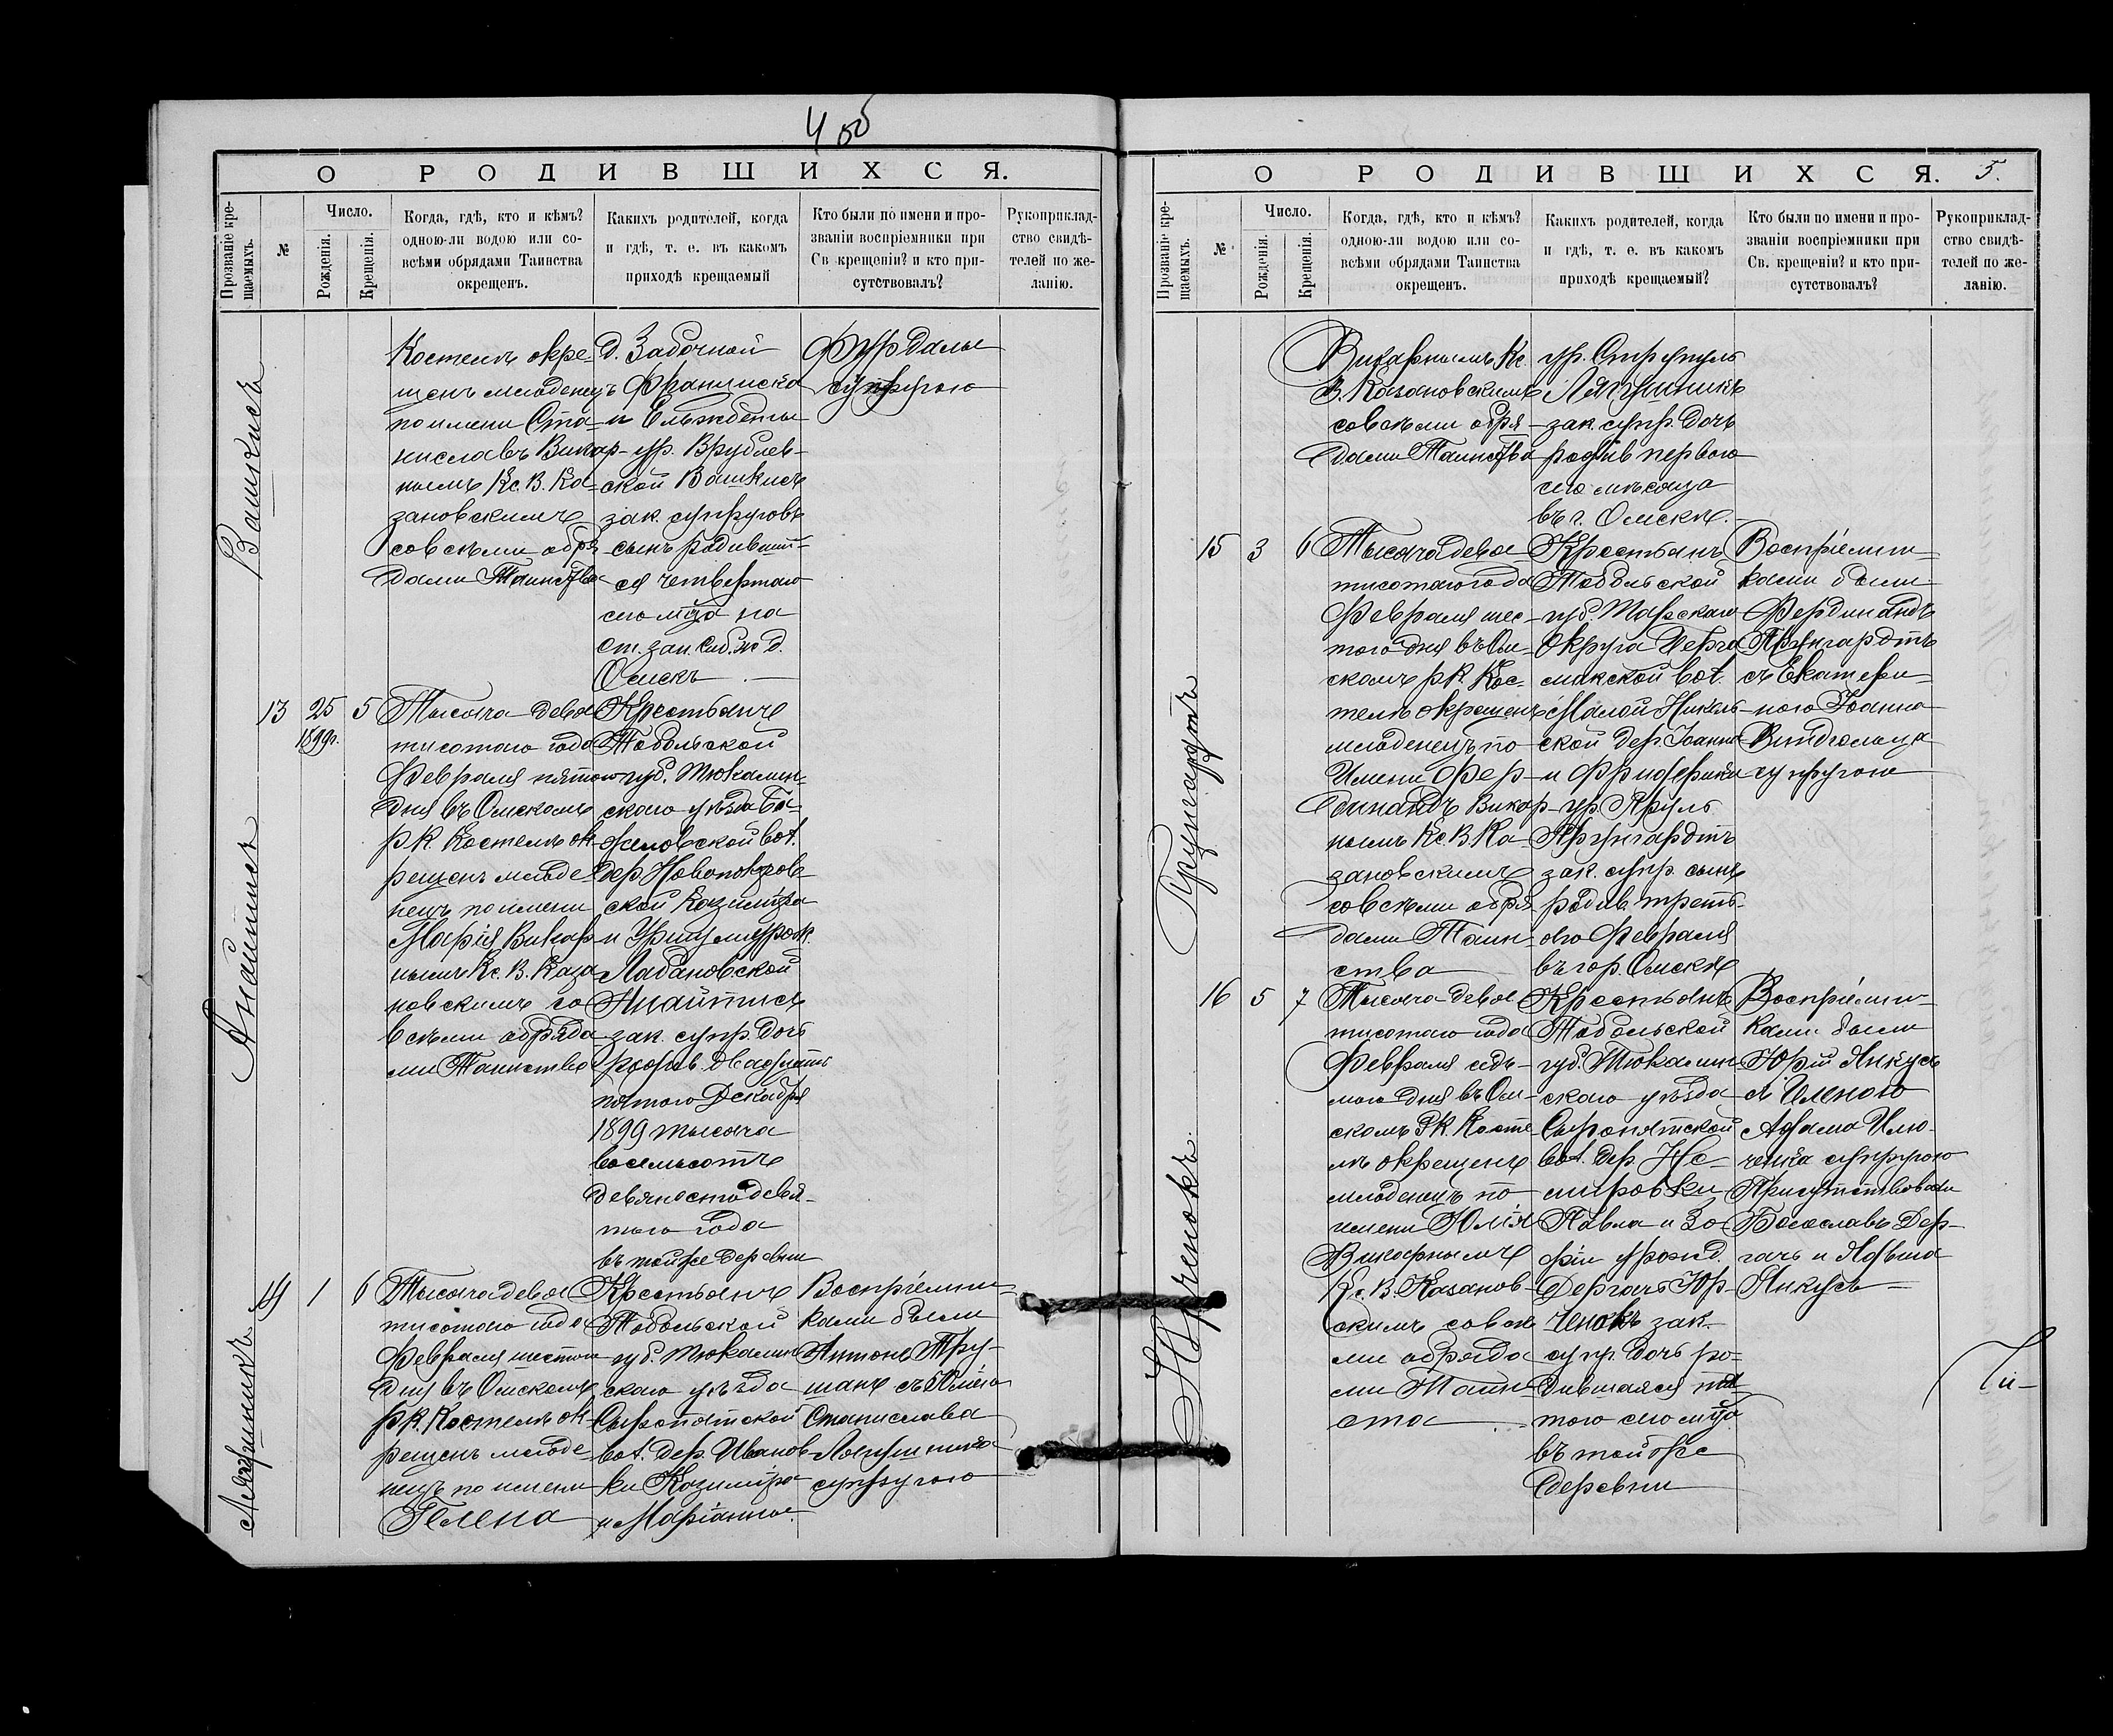 4 об
О РОДИВШИХСЯ.
Прозваніе крещаемыхъ.
№
Число.
Рожденія.
Крещенія.
Когда, гдѣ, кто и кѣмъ?
одною-ли водою или со-
всѣми обрядами Таинства
окрещенъ.
Какихъ родителей, когда
и гдѣ, т. е. въ какомъ
приходѣ крещаемый
Кто были по имени и про-
званіи воспріемники при
Св крещеніи? и кто при-
сутствовалъ?
Рукоприклад-
ство свидѣ-
телей по же-
ланію.
Вашкисъ
Костелѣ окре-
щенъ младенецъ
по имени Ста-
ниславъ Викар-
нымъ Кс. В. Ка-
зановскимъ
со всѣми обря
дами Таинства
д. Забочной
Франциска
и Ельжбеты
ур. Врублев-
ской Вашкисъ
зак. супруговъ
сынъ родивший-
ся четвертаго
сего м-ца на
ст. зап. Сиб. ж д.
Омскъ
Фурдалы
супругою
Анайтисъ
13
25
1899г.
5
Тысяча девя
тисотаго года
Февраля пятого
дня въ Омскомъ
рк. Костелѣ ок
рещенъ младе
нецъ по имени
Марія Викар
нымъ Кс. В. Каза
новскимъ со
всѣми обряда
ми Таинства
Крестьянъ
Тобольской
губ. Тюкалин-
скаго уѣзда
вол.
дер. Новопокров-
ской Казиміра
и Уршули урож.
Лабановской
Анайтисъ
зак. супр. дочь
родив. двадцать
пятого Декабря
1899 тысяча
восемьсотъ
девяностодевя-
таго года
въ тойже деревни
14
1
6
Тысяча девя
тисотаго года
Февраля шестого
дня въ Омскомъ
рк. Костелѣ ок-
рещенъ младе-
нецъ по имени
Гелена
Крестьянъ
Тобольской
губ. Тюкалин
скаго уѣзда
Сыропятской
вол. дер. Иванов-
ки Казиміра
и Маріанны
Воспріемни-
ками были
Антонъ Тру-
шанъ съ Юліею
Станислава
супругою
О РОДИВШИХСЯ.
5.
Прозваніе крещаемыхъ.
№
Число.
Рожденія.
Крещенія.
Когда, гдѣ, кто и кѣмъ?
одною-ли водою или со-
всѣми обрядами Таинства
окрещенъ.
Какихъ родителей, когда
и гдѣ, т. е. въ какомъ
приходѣ крещаемый?
Кто были по имени и про-
званіи воспріемники при
Св. крещеніи? и кто при-
сутствовалъ?
Рукоприклад-
ство свидѣ-
телей по же-
ланію.
Викарнымъ Кс.
В. Казановскимъ
со всѣми обря-
дами Таинства
ур. Струпуль
зак. супр. дочь
родив первого
сего мѣсяца
въ г. Омскѣ.
Грунгардтъ
15
3
6
Тысяча девя
тисотаго года
Февраля шес-
того дня въ Ом-
скомъ рк. Кос-
телѣ окрещенъ
младенецъ по
имени Фер-
динандъ Викар-
нымъ Кс. В. Ка-
зановскимъ
со всѣми обря
дами Таин-
ства
Крестьянъ
Тобольской
губ. Тарскаго
Округа
вол.
Малой Николь-
ской дер. Іоанна
и Фридерики
ур. Круль
Грунгардтъ
зак. супр. сынъ
родив. треть-
яго Февраля
въ гор. Омскѣ
Воспріемни
ками были
Фердинандъ
Грунгардтъ
съ Екатери-
ною Іоанна
супругою
Юрченокъ
16
5
7
Тысяча девя
тисотаго года
Февраля седь-
мого дня въ Ом-
скомъ РК Косте-
лѣ окрещенъ
младенецъ по
имени Юлія
Викарнымъ
Кс. В. Казанов-
скимъ со всѣ
ми обряда
ми Таин
ства
Крестьянъ
Тобольской
губ. Тюкалин-
скаго уѣзда
Сыропятской
вол. дер. Не-
мировки
Павла и Зо-
фіи урожд.
Дергачъ Юр-
ченокъ зак.
супр. дочь ро-
дившаяся пя-
того сего м-ца
въ тойже
деревни
Воспріемни-
ками были
Юрій Янкусъ
съ Еленою
Адама Илю-
ченка супругою
Присутствовали
Богославъ Дер-
гачъ и Ядвига
Янкусъ